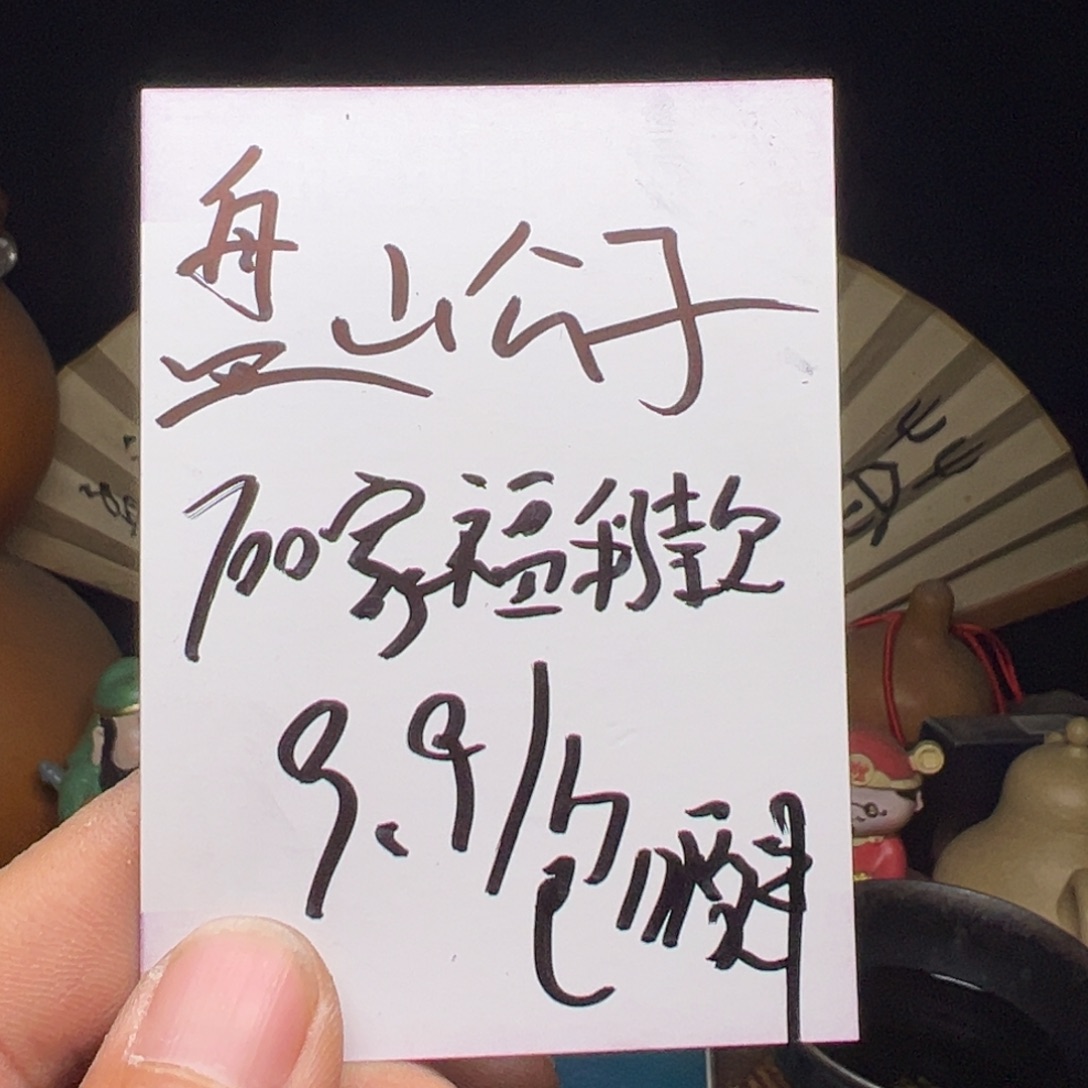 盘山公子
700家福利款
9.9/包